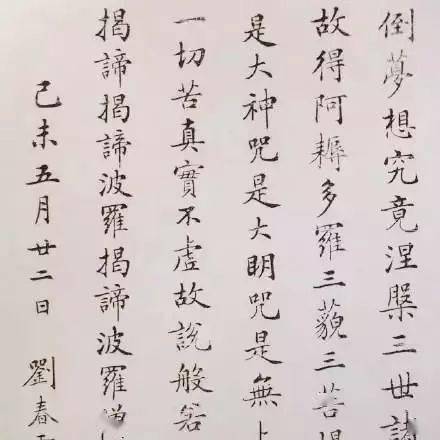 倒夢想究竟涅槃三世諸
故得阿耨多羅三藐三菩提
是大神咒是大明咒是無上
一切苦真實不虛故說般若
揭諦揭諦波羅揭諦波羅
己未五月廿二日 劉春